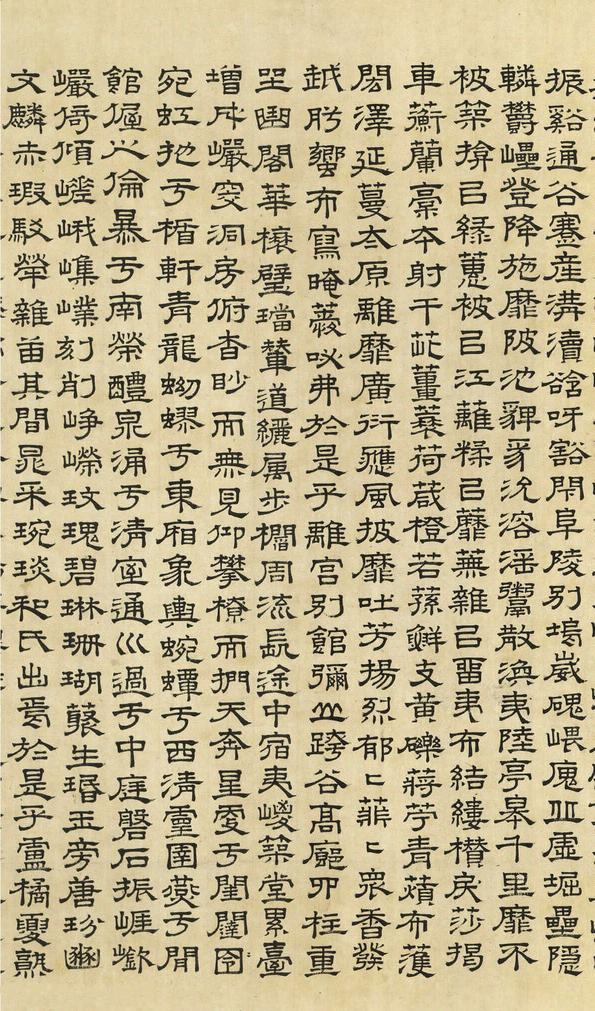 振谿通谷蹇産溝瀆谽呀豁閕阜陵別塢崴磈嵔廆丘虛堀壘隱
轔鬱壘登降施靡陂池貏豸沇溶淫鬻散渙夷陸亭皋千里靡不
被築揜㠯綠蕙被㠯江蘺糅㠯蘪蕪雜㠯留夷布結縷欑戾莎揭
車蘅蘭稾本射干茈薑蘘荷葴橙若蓀鮮支黃礫蔣苧青薠布濩
閎澤延蔓太原離靡廣衍應風披靡吐芳揚烈郁〻菲〻眾香發
越肸蠁布寫晻薆咇茀於是乎離宮別館彌山跨谷高廊四柱重
坐曲閣華榱璧璫輦道纚屬步櫩周流長途中宿夷嵕築堂累臺
增成巖窔洞房俯杳眇而無見仰攀橑而捫天奔星更于閨闥
宛虹扡于楯軒青龍蚴蟉于東廂象輿蜿蟬于西清靈圄燕于閒
館偓之倫暴于南榮醴泉涌于清室通川過于中庭磐石振崖嶔
巖倚傾嵯峨嶕嶫刻削崢嶸玫瑰碧琳珊瑚叢生瑉玉旁唐玢豳
文麟赤瑕駁犖雜臿其間晁采琬琰和氏出焉於是乎盧橘夏熟